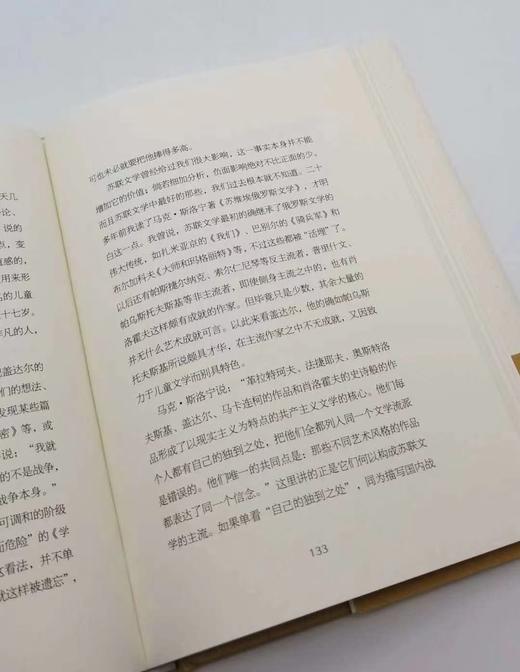 天几
论、
说的
点，变
直感的，
更用来形
名的儿童
十七岁。
非凡的人，
写盖达尔的
们的想法、
发现某些篇
密》等，或
乍说：“我就
的不是战争，
战争本身。”
可调和的阶级
而危险”的《学
这看法，并不单
就这样被遗忘”，
可也未必就要把他捧得多高。
苏联文学曾经给过我们很大影响，这一事实本身并不能
增加它的价值；倘若细加分析，负面影响绝对不比正面的少，
而且苏联文学中最好的那些，我们过去根本就不知道。二十
多年前我读了马克·斯洛宁著《苏维埃俄罗斯文学》，才明
白这一点。我曾说，苏联文学最初的确继承了俄罗斯文学的
伟大传统，如扎米亚京的《我们》、巴别尔的《骑兵军》和
布尔加科夫《大师和玛格丽特》等，不过这些都被“活埋”了。
以后还有帕斯捷尔纳克、索尔仁尼琴等反主流者，普里什文、
帕乌斯托夫斯基等非主流者，即使侧身主流之中的，也有肖
洛霍夫这样颇有成就的作家。但毕竟只是少数，其余大量的
并无什么艺术成就可言。以此来看盖达尔，他的确如帕乌斯
托夫斯基所说颇具才华，在主流作家之中不无成就，又因致
力于儿童文学而别具特色。
马克·斯洛宁说：“革拉特珂夫、法捷耶夫、奥斯特洛
夫斯基、盖达尔、马卡连柯的作品和肖洛霍夫的史诗般的作
品形成了以现实主义为特点的共产主义文学的核心。他们每
个人都有自己的独到之处，把他们全都列入同一个文学流派
是错误的。他们唯一的共同点是：那些不同艺术风格的作品
都表达了同一个信念。”这里讲的正是它们何以构成苏联文
学的主流。如果单看“自己的独到之处”，同为描写国内战
133